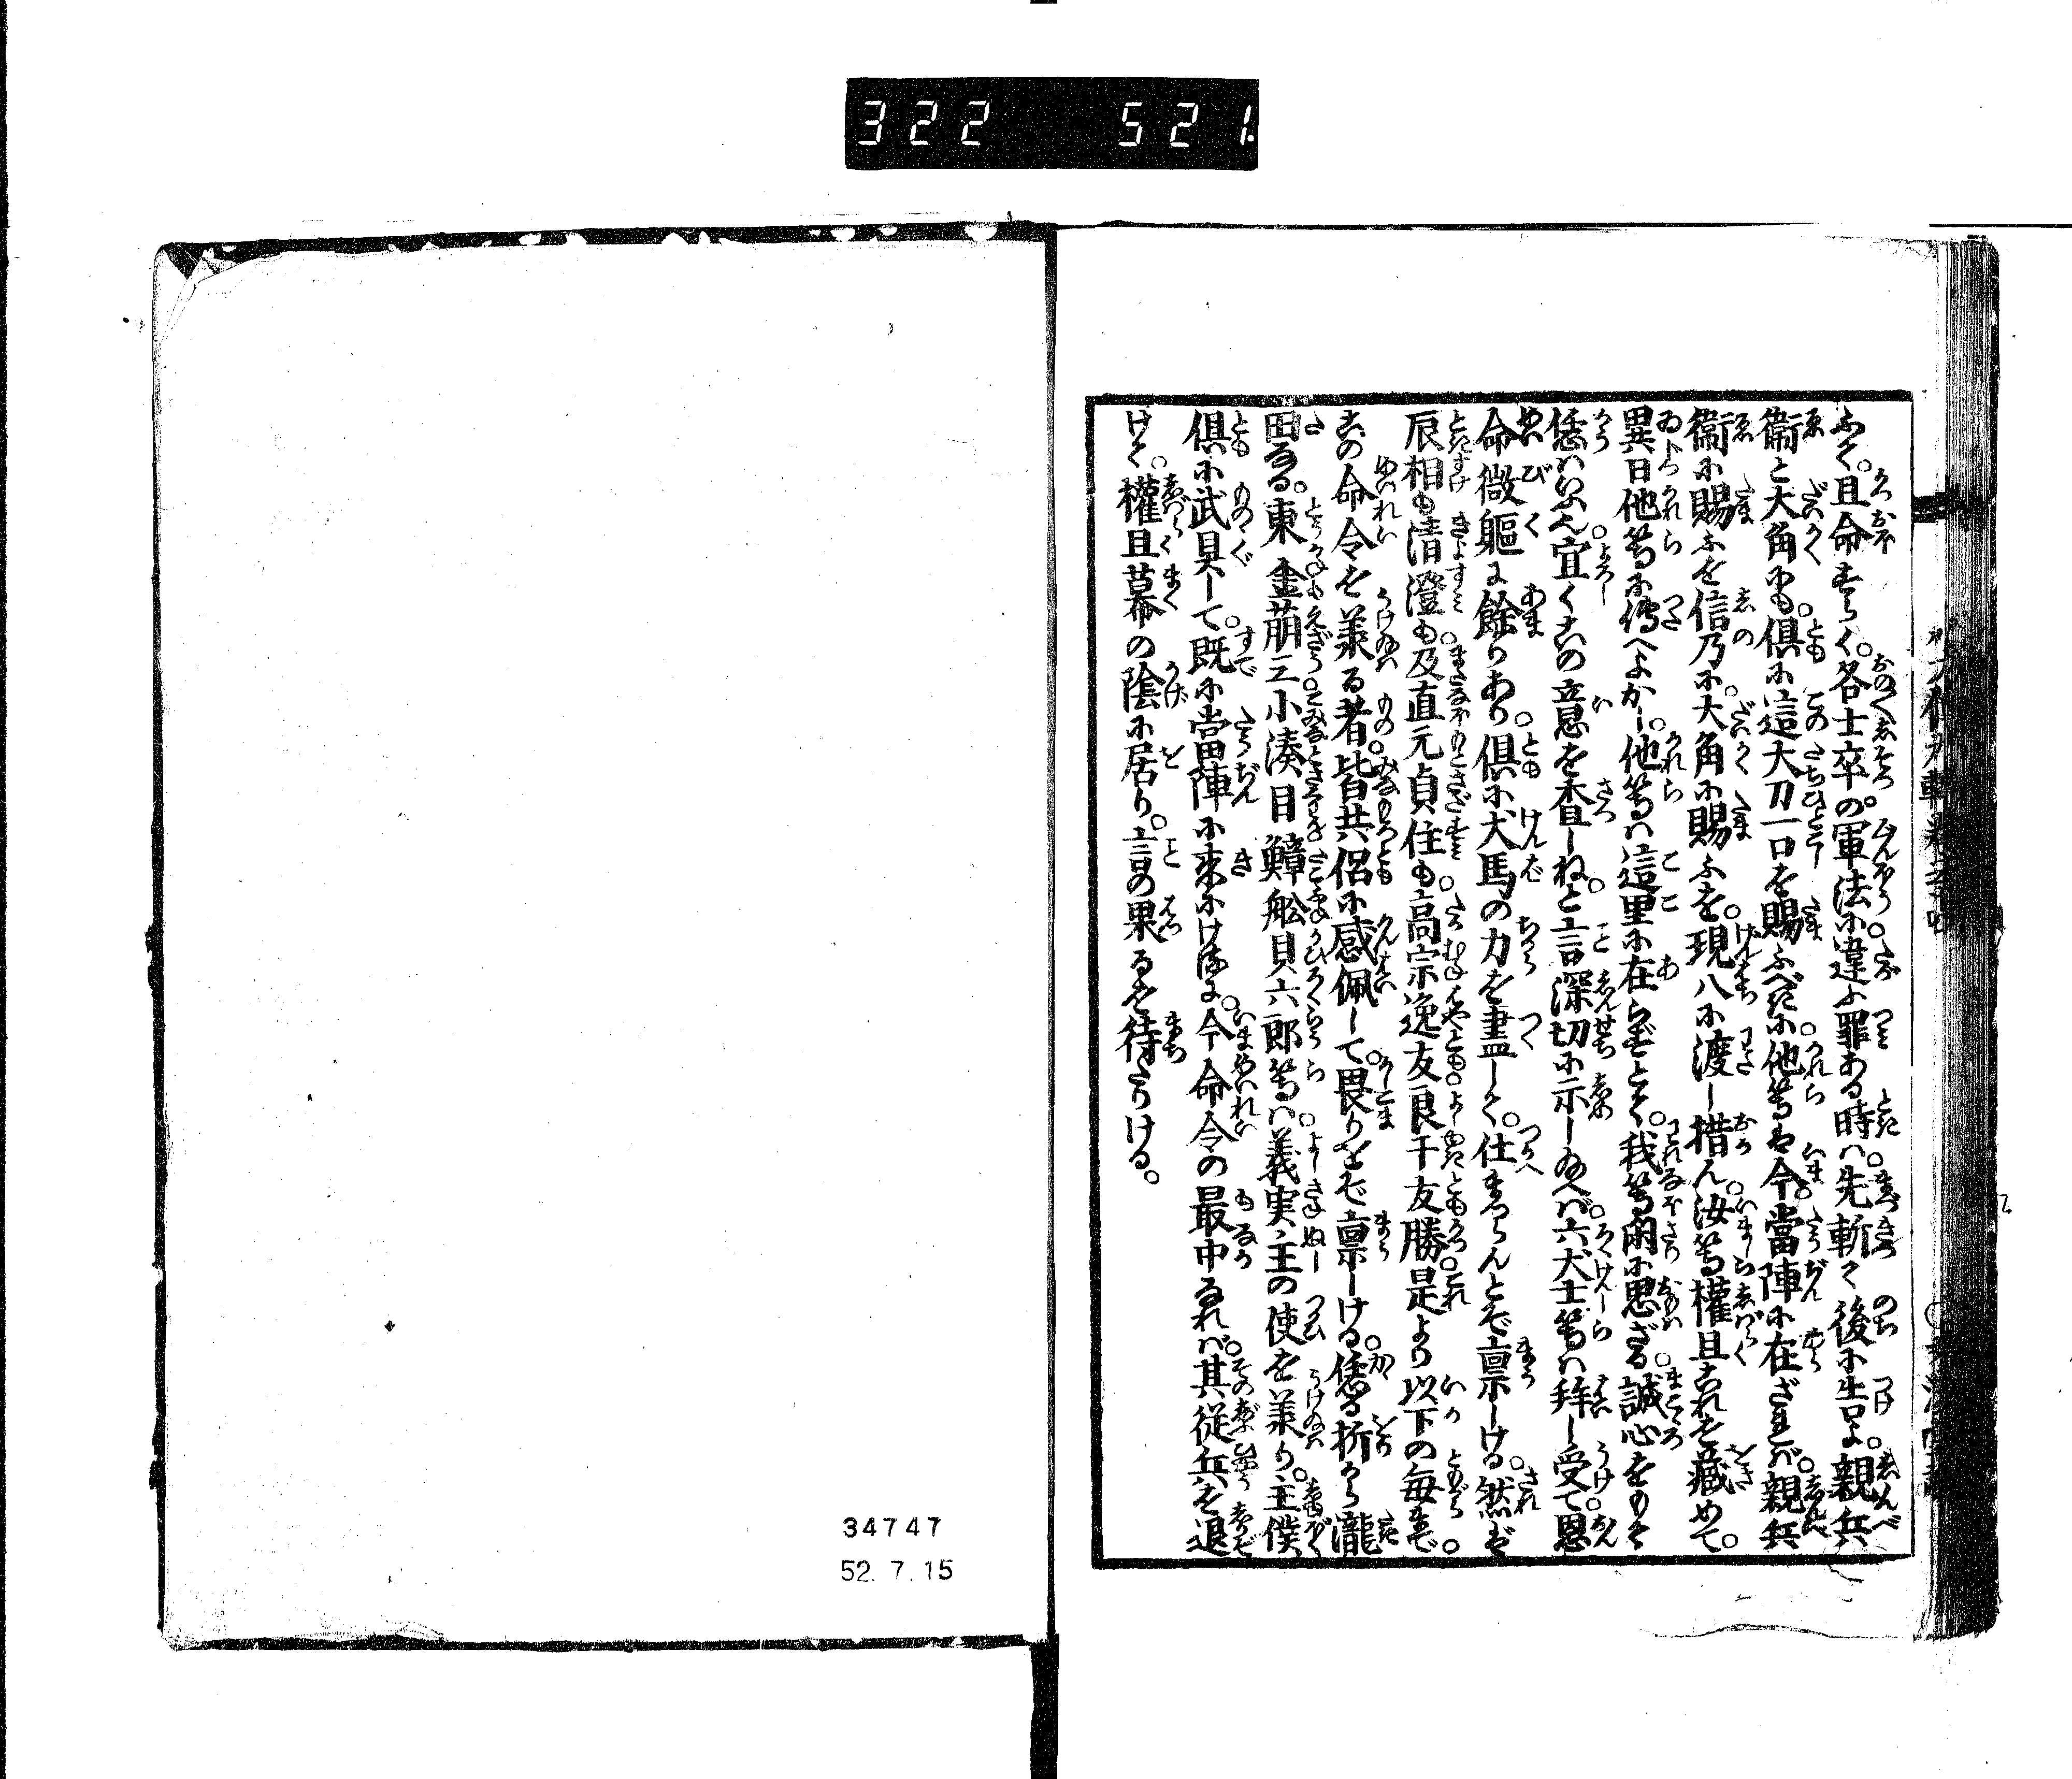 322 521
ふて。且命ずらく。各士卒の。軍法に違ふ罪ある時は。先斬て後に生口よ。親兵
衛と大角にも。倶に這大刀一口を賜ふべきに。他等は今。當陣に在ざれば。親兵
衛に賜ふを信乃に。大角に賜ふを。現八に渡し措ん。汝等權且これを藏めて。
異日他等に傳へよかし。他等は這里に在らずとて。我等閑に思ざる。誠心をもて
恁はいふ也。宜くこの意を査しねと。言深切に示し給へば。六犬士等は拜し受て。恩
命微軀に餘りあり。倶に犬馬の力を盡して。仕まつらんとぞ稟しける。然ば
辰相も清澄も。及直元貞住も。高宗逸友良干友勝。是より以下の毎まで。
この命令を義る者。皆共侶に感佩して。畏りをぞ稟しける。恁る折から瀧
田なる。東金萠三小湊目鱆舩貝六郎等は。義実主の使を義り。主僕
倶に武具して。既に當陣に来にけるに。今命令の最中なれば。其従兵を退
けて。權且幕の陰に居り。言の果るを待たりける。
34747
52. 7. 15